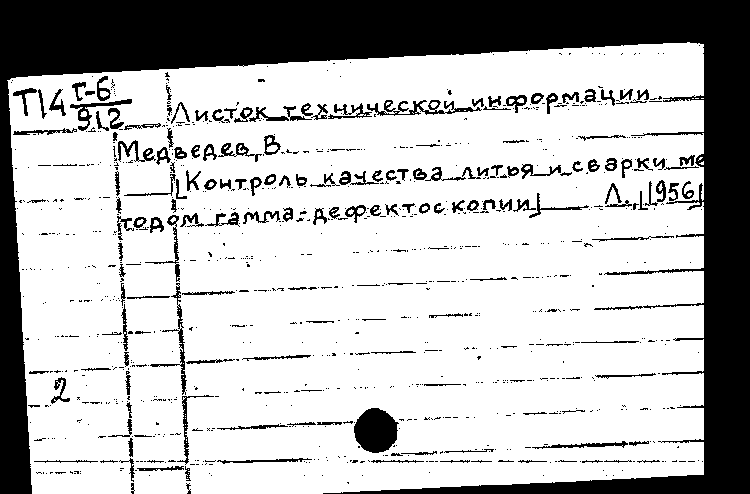 П4 Г-6
912
Листок технической информации
Медведев, В.
[Контроль качества литья и сварки ме
тодом гамма-дефектоскопии] Л., [1956]
2